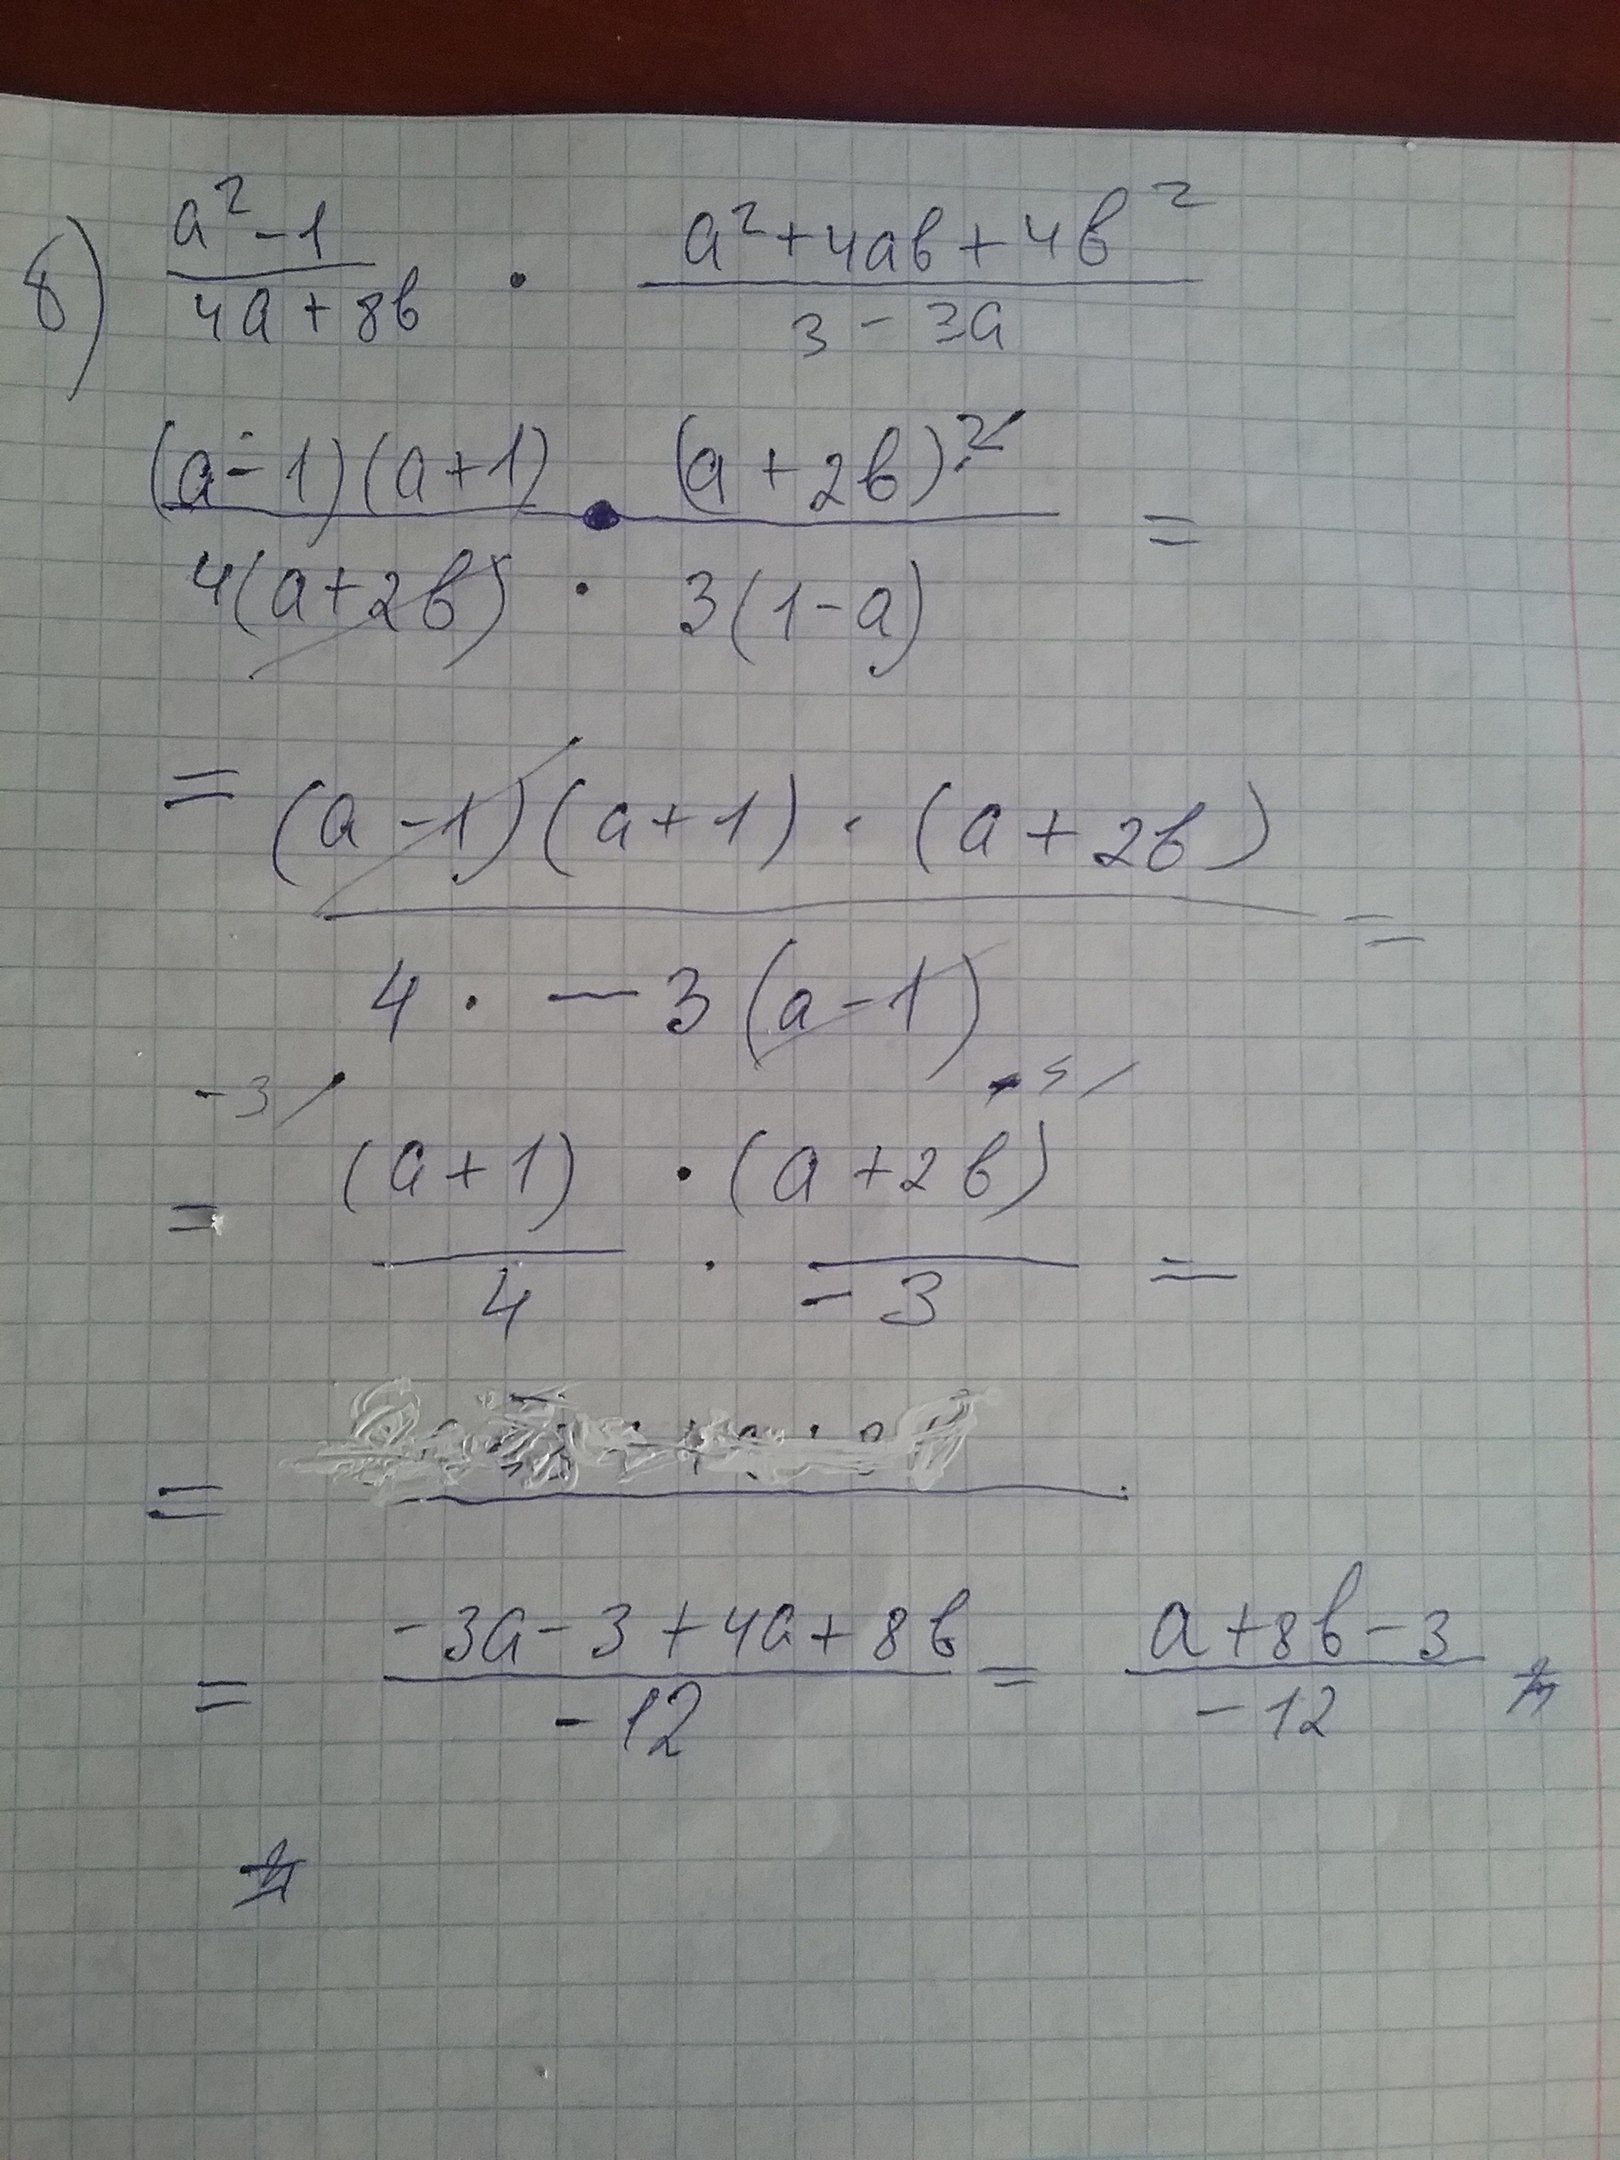 8) a²-1 / 4a+8b · a²+4ab+4b² / 3-3a
(a-1)(a+1) · (a+2b)² / 4(a+2b) · 3(1-a) =
= (a-1)(a+1) · (a+2b) / 4 · -3(a-1) =
-3/
= (a+1) / 4 · (a+2b) / -3 =
=
= -3a-3+4a+8b / -12 = a+8b-3 / -12